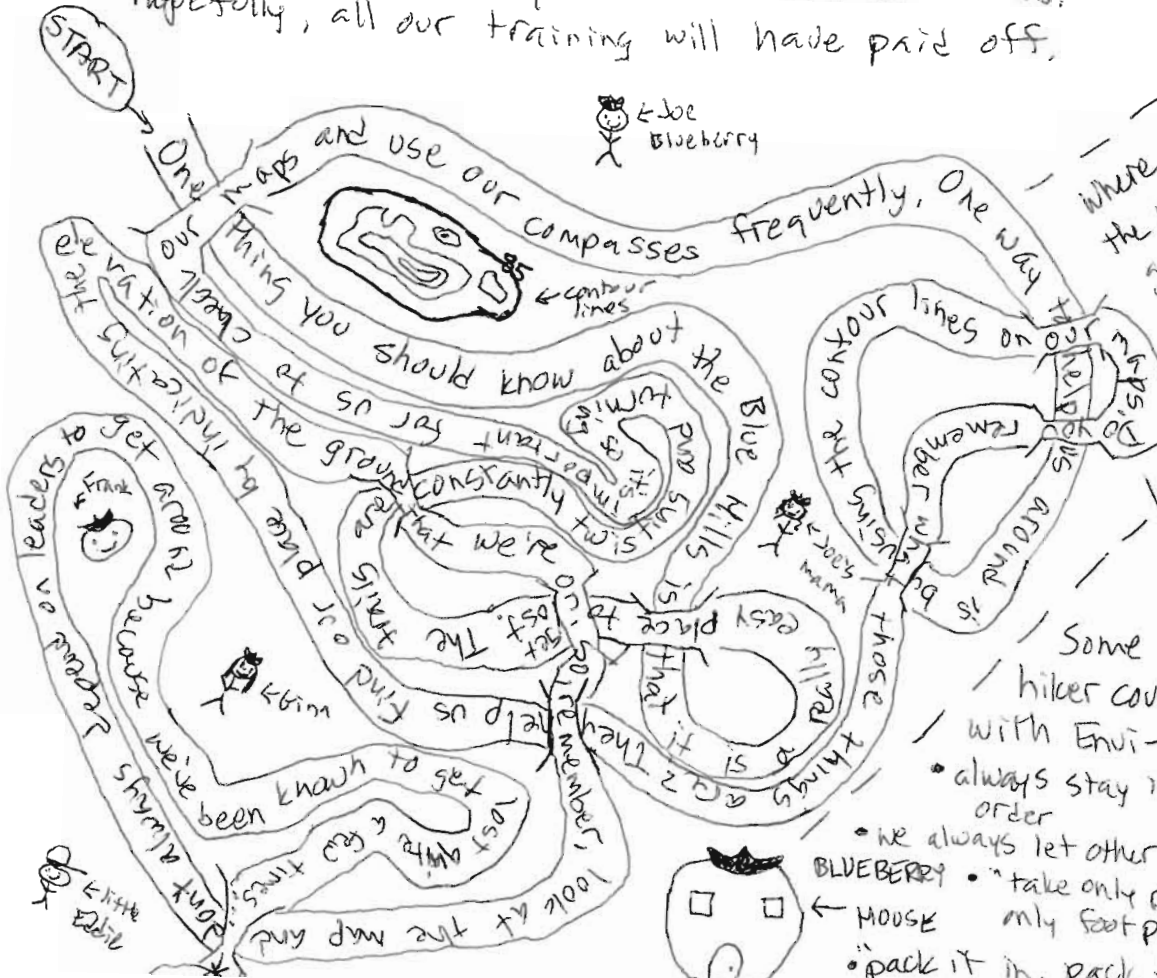 Hopefully, all our training will have paid off.
START
One thing you should know about the Blue Hills is that it is a really easy place to get lost. The trails are constantly twisting and turning so it is important for us to check our maps and use our compasses frequently. One way to help us around is by using the contour lines on our maps. Do you remember what those things are? They help us find our place by indicating the elevation to the ground that we're on. So remember, look at the map and don't always depend on leaders to get around because we've been known to get lost quite a few times...
Joe
Blueberry
85
contour
lines
Joe's
mama
Frank
Gina
little
Eddie
BLUEBERRY
HOUSE
where
the
Some
hiker cou
with Envi-
• always stay i
order
• we always let other
• "take only p
only footp
• "pack it in, pack